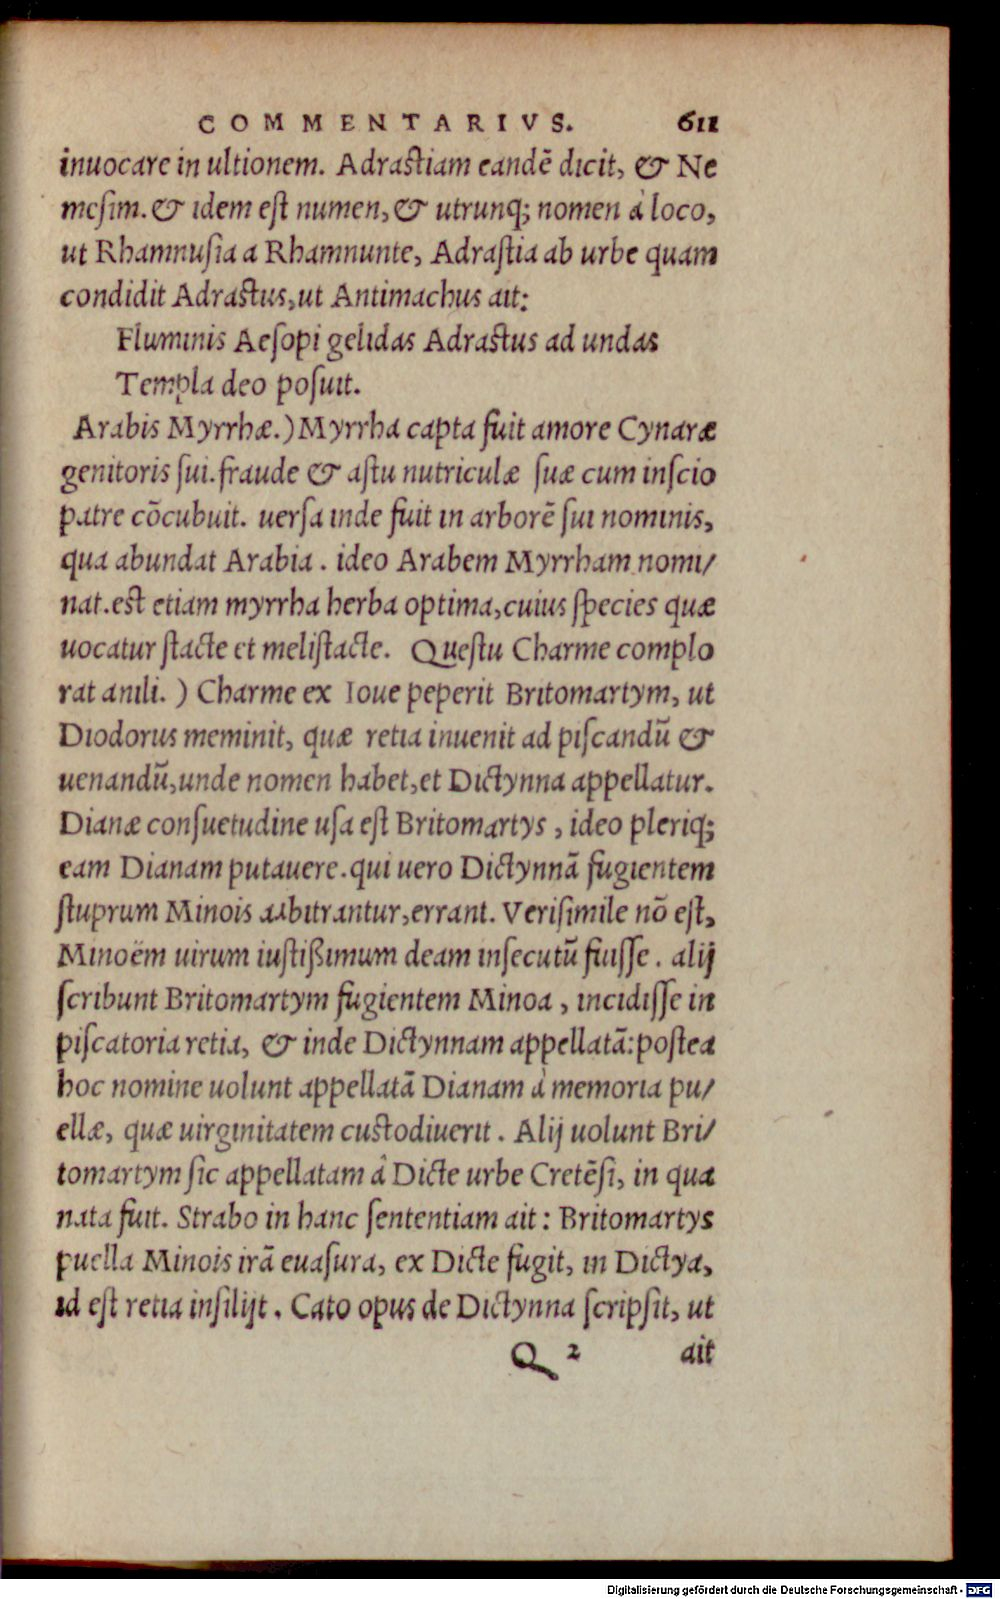 COMMENTARIVS. 611
inuocare in ultionem. Adrastiam eandē dicit, & Ne
mesim. & idem est numen, & utrunq; nomen à loco,
ut Rhamnusia a Rhamnunte, Adrastia ab urbe quam
condidit Adrastus, ut Antimachus ait:
Fluminis Aesopi gelidas Adrastus ad undas
Templa deo posuit.
Arabis Myrrhæ.) Myrrha capta fuit amore Cynaræ
genitoris sui. fraude & astu nutriculæ suæ cum inscio
patre cōcubuit. uersa inde fuit in arborē sui nominis,
qua abundat Arabia. ideo Arabem Myrrham nomi/
nat. est etiam myrrha herba optima, cuius species quæ
uocatur stacte et melistacte. Questu Charme complo
rat anili.) Charme ex Ioue peperit Britomartym, ut
Diodorus meminit, quæ retia inuenit ad piscandū &
uenandū, unde nomen habet, et Dictynna appellatur.
Dianæ consuetudine usa est Britomartys, ideo pleriq;
eam Dianam putauere. qui uero Dictynnā fugientem
stuprum Minois arbitrantur, errant. Verisimile nō est,
Minoëm uirum iustißimum deam insecutū fuisse. alij
scribunt Britomartym fugientem Minoa, incidisse in
piscatoria retia, & inde Dictynnam appellatā: postea
hoc nomine uolunt appellatā Dianam à memoria pu/
ellæ, quæ uirginitatem custodiuerit. Alij uolunt Bri/
tomartym sic appellatam â Dicte urbe Cretēsi, in qua
nata fuit. Strabo in hanc sententiam ait: Britomartys
puella Minois irā euasura, ex Dicte fugit, in Dictya,
id est retia insilijt. Cato opus de Dictynna scripsit, ut
Q 2 ait
Digitalisierung gefördert durch die Deutsche Forschungsgemeinschaft - DFG